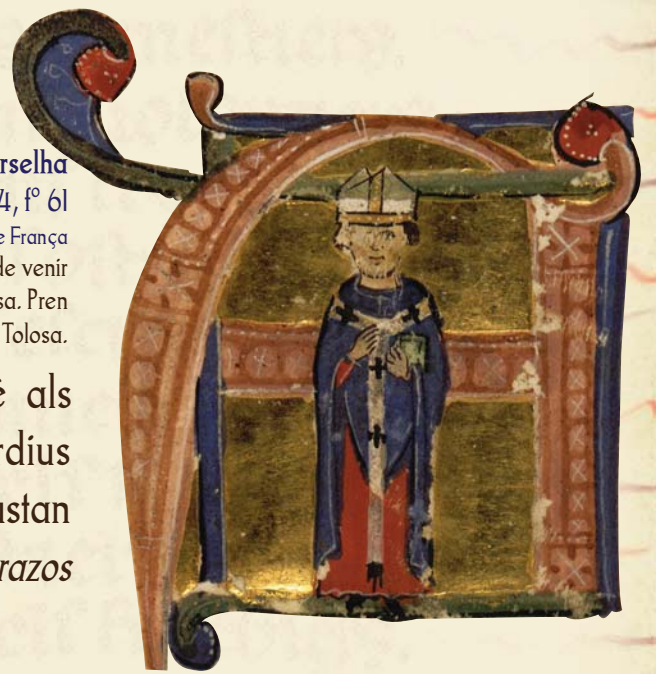 rselha
4, fº 61
e França
de venir
sa. Pren
Tolosa.
è als
rdius
ustan
razos